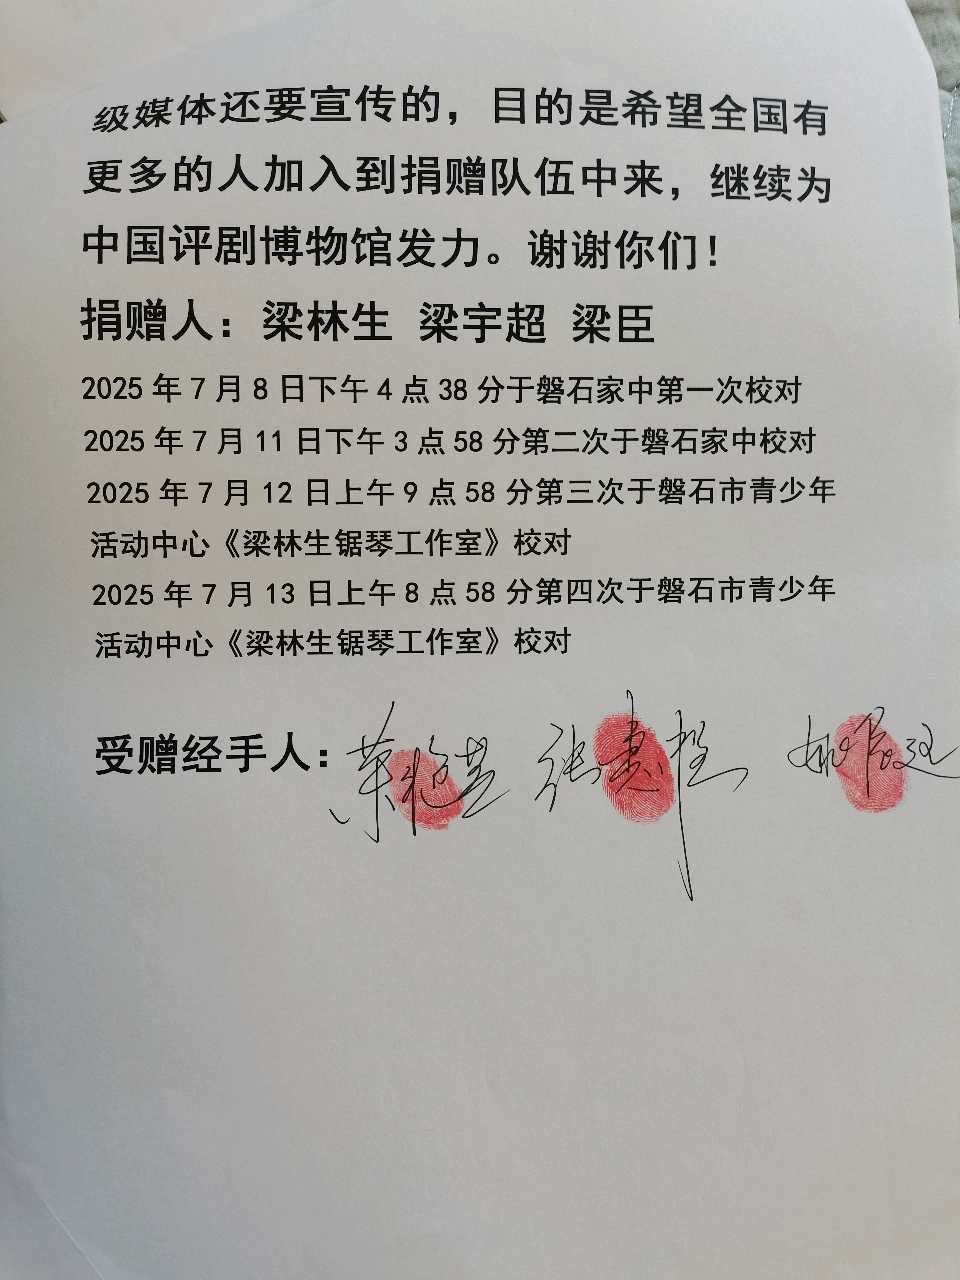 级媒体还要宣传的，目的是希望全国有
更多的人加入到捐赠队伍中来，继续为
中国评剧博物馆发力。谢谢你们！
捐赠人：梁林生 梁宇超 梁臣
2025年7月8日下午4点38分于磐石家中第一次校对
2025年7月11日下午3点58分第二次于磐石家中校对
2025年7月12日上午9点58分第三次于磐石市青少年
活动中心《梁林生锯琴工作室》校对
2025年7月13日上午8点58分第四次于磐石市青少年
活动中心《梁林生锯琴工作室》校对
受赠经手人： 张惠